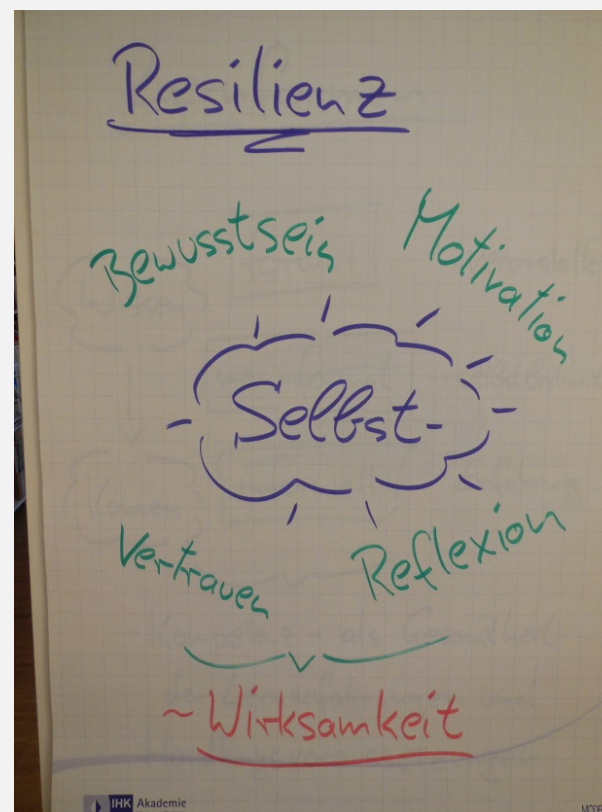 Resilienz
Bewusstsein Motivation
Selbst-
Vertrauen Reflexion
~ Wirksamkeit
IHK Akademie